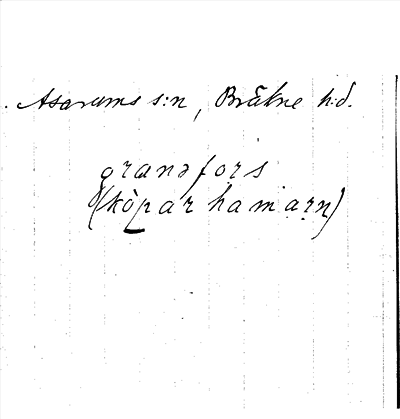 Asarums s:n, Bräkne h:d.
granəfors
(kòpar hamaṛn)